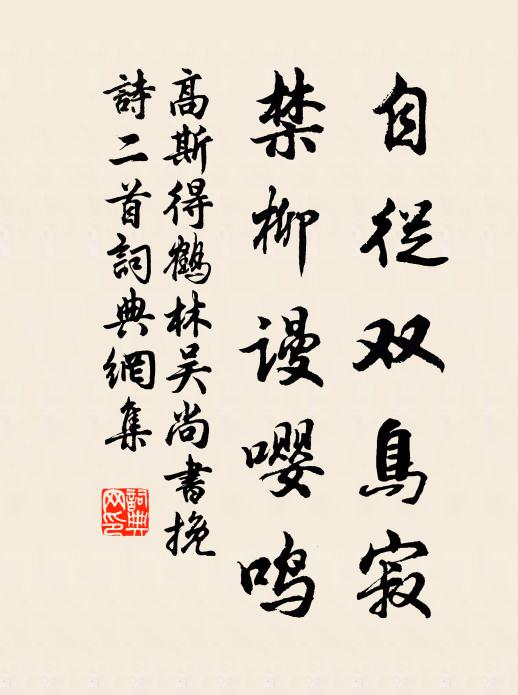 自從双鳥寂
禁柳谩嘤鸣
高斯得鶴林吴尚書挽
詩二首詞典網集
詞典
网印